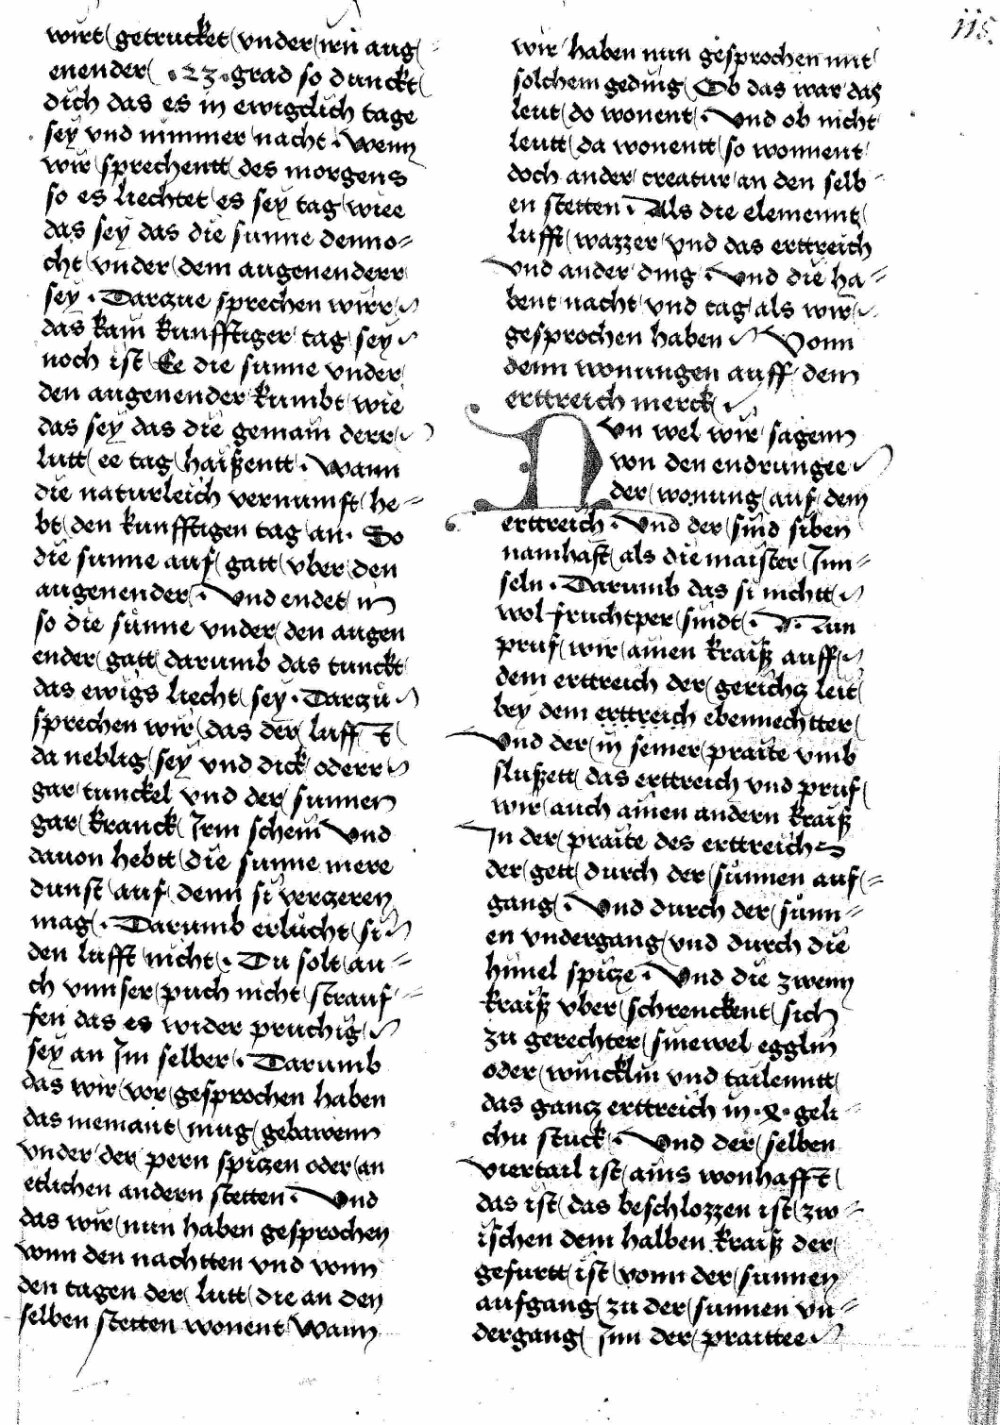 115.
wirt getrucket vnder irn aug-
enender .23. grad so dunckt
dich das es in ewigclich tage
sey vnd nimmer nacht. Wenn
wir sprechentt des morgens
so es liechtet es sey tag wiee
das sey das die sunne denno=
cht vnder dem augenenderr
sey. Darzue sprechen wirr
das kain kunfftiger tag sey
noch ist Ee die sunne vnder
den augenender kumbt wie
das sey das die gemain derr
lutt ee tag haißentt. Wann
die naturleich vernunfft he=
bt den kunfftigen tag an. So
die sunne auf gatt vber den
augenender. Vnd endet in
so die sunne vnder den augen
ender gatt darumb das tunckt
das ewigs liecht sey. Darzu
sprechen wir das der lufft
da neblig sey vnd dick oderr
gar tunckel vnd der sunnen
gar kranck Irm schein Vnd
dauon hebtt die sunne mere
dunst auf denn si verzeren
mag. Darumb erlucht si
den lufft nicht. Du solt au=
ch vnnser puch nicht strauf=
fen das es wider pruchig
sey an Im selber. Darumb
das wir vor gesprochen haben
das niemant mug gebawenn
vnder der pern spitzen oder an
etlichen andern stetten. Vnd
das wir nun haben gesprochen
vonn den nachtten vnd vonn
den tagen der lutt die an den
selben stetten wonent Wann
wir haben nun gesprochen mit
solchem geding Ob das war das
leut do wonent. Vnd ob nicht
leutt da wonentt so wonnent
doch ander creatur an den selb=
en stetten. Als die elemennt
lufft wazzer vnd das erttreich
vnd ander ding. Vnd die ha=
bent nacht vnd tag als wir
gesprochen haben Vonn
denn wonungen auff dem
erttreich merck
Nvn wel wir sagenn
von den endrungee
der wonung auf dem
erttreich. Vnd der sind siben
namhafft als die maister Inn=
seln. Darumb das si nichtt
wol fruchtper sindt. Nun
pruf wir ainen kraiß auff
dem erttreich der gerichs leit
bey dem erttreich ebennechtter
Vnd der in seiner praite vmb
slußett das erttreich vnd pruf
wir auch ainen andern kraiß
In der praite des erttreichs
der gett durch der sunnen auf=
gang. Vnd durch der sunn=
en vndergang vnd durch die
himel spitze. Vnd die zwenn
kraiß vber schrenckent sich
zu gerechter sinewel egglin
oder winncklin vnd tailenntt
das gantz erttreich in .4. geli=
chu stuck. Vnd der selben
viertail ist ains wonhafft
das ist das beschlozzen ist zw=
ischen dem halben kraiß der
gefurtt ist vonn der sunnen
aufgang zu der sunnen vn=
dergang Inn der praittee